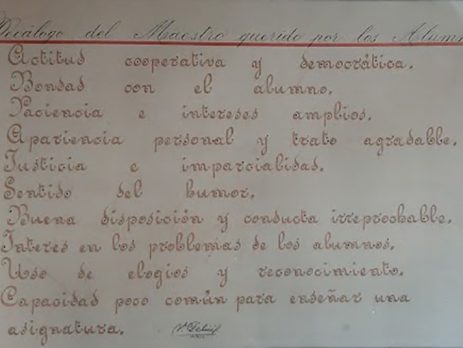 Decálogo del Maestro querido por los Alumn
Actitud cooperativa y democrática.
Bondad con el alumno.
Paciencia e intereses amplios.
Apariencia personal y trato agradable.
Justicia e imparcialidad.
Sentido del humor.
Buena disposición y conducta irreprochable.
Interes en los problemas de los alumnos.
Uso de elogios y reconocimiento.
Capacidad poco común para enseñar una
asignatura.